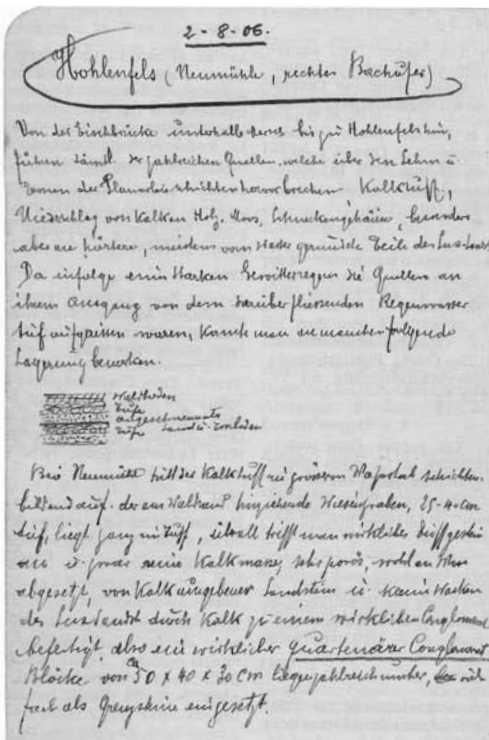 2-8-06.
Hohlenfels (Neumühle, rechtes Bachufer)
Von der Eischbrücke unterhalb bis zu Hohlenfels hin,
führen sämtl. der zahlreichen Quellen, welche über den Lehm u
Tonen der hervorbrechen Kalktuff,
Niederschlag von Kalk an Holz, Moos, Schneckengehäuse, besonders
aber an härtere, meistens vom Wasser gerundete Teile des
Da infolge eines starken Gewitterregens die Quellen an
ihrem Ausgang von dem darüber fliessenden Regenwasser
tief aufgerissen waren, konnte man an manchen folgende
Lagerung bemerken.
Waldboden
Tufe
angeschwemmte
Tufe Sand u. Tonboden
Bei Neumühle tritt der Kalktuff in grösserem schichten-
bildend auf. der am Waldrand hinziehende Wiesengraben, 25-40cm
tief, liegt ganz im Tuff, überall trifft man wirkliches Tuffgestein
an u. zwar reine Kalkmasse, sehr porös,
abgesetzt, von Kalk umgebener Sandstein u.
des durch Kalk zu einem wirklichen Conglomerat
befestigt, also ein wirklicher quartenärer Conglomerat
Blöcke von 50 x 40 x 30 cm liegen zahlreich umher,
fach als Grenzsteine eingesetzt.